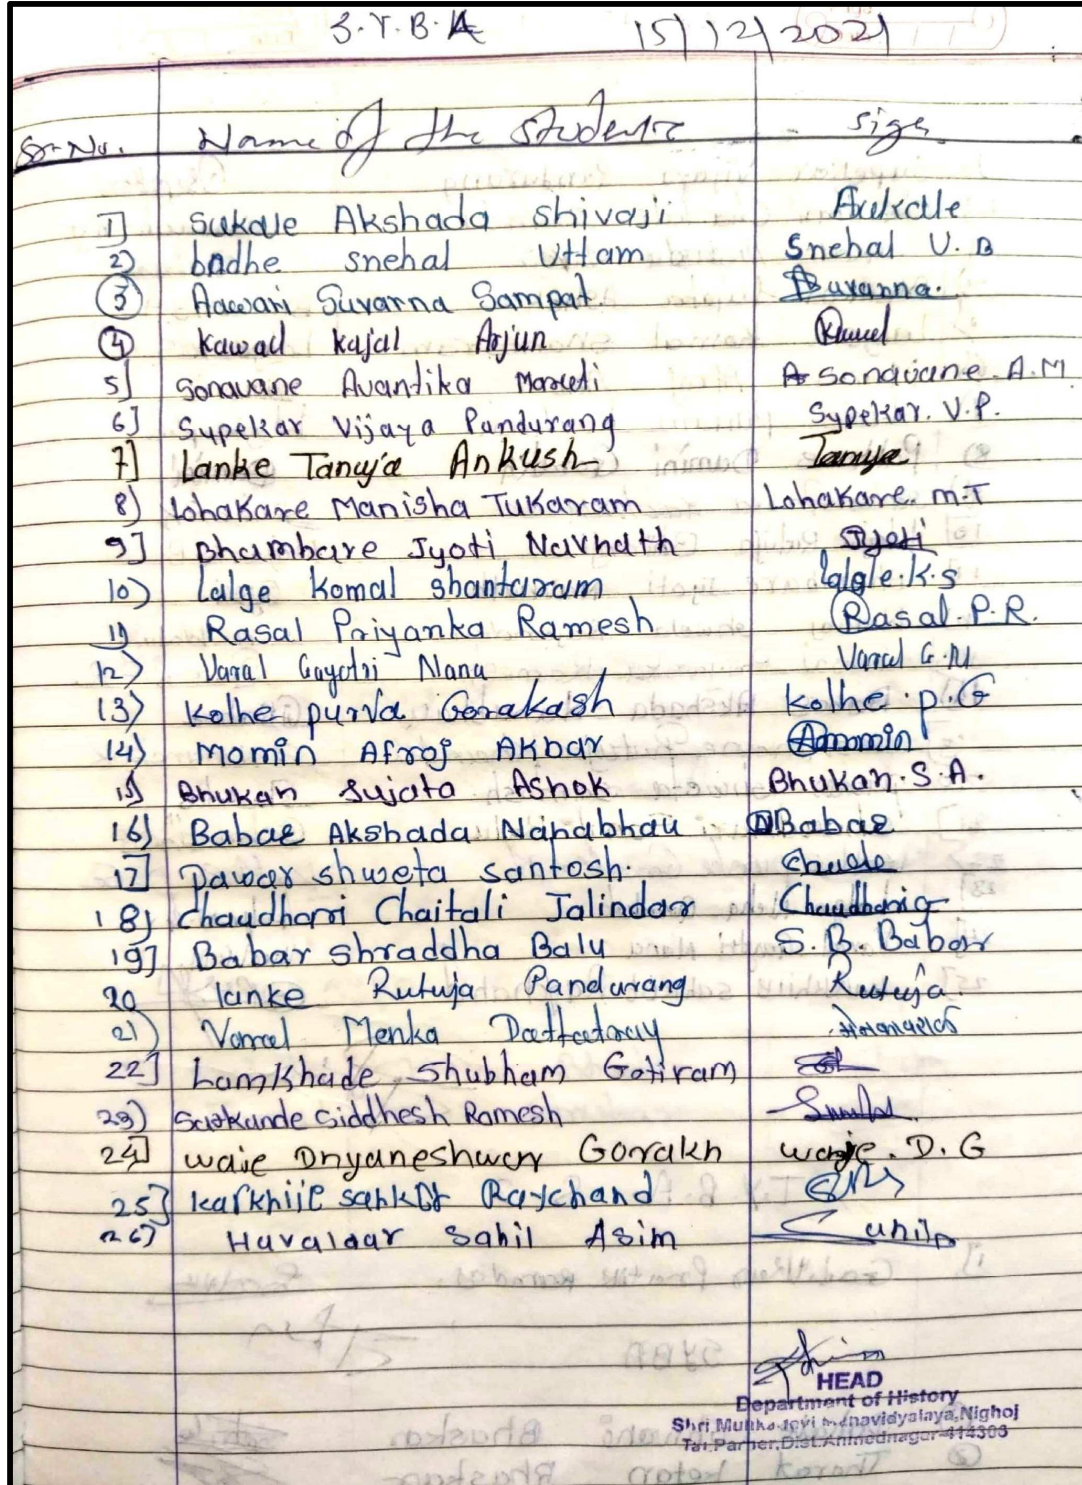 S.Y.B.A 15/12/2021
Sr. No. Name of the students sign
1] Sukale Akshada Shivaji Aukale
2) badhe snehal Uttam Snehal U. B
3 Aawari Suvarna Sampat. Suvarna.
4 Kawad Kajal Arjun
5] Sonavane Avantika Maruti A Sonavane. A.M
6] Supekar Vijaya Pandurang Supekar. V.P.
7] Lanke Tanuja Ankush Tanuja
8) Lohakare Manisha Tukaram Lohakare. m.T
9] Bhambare Jyoti Navnath Jyoti
10) Lalge Komal shantaram lalge.K.S
11) Rasal Priyanka Ramesh Rasal.P.R.
12) Varal Gayatri Nana Varal G.N
13) Kolhe purva Gorakash Kolhe.p.G
14) Momin Afroj Akbar Amomin
15) Bhukan Sujata Ashok Bhukan.S.A.
16) Babar Akshada Nanabhau Babar
17] Pawar shweta santosh.
18) Chaudhari Chaitali Jalindar
19] Babar shraddha Balu S.B. Babar
20 lanke Rutuja Pandurang Rutuja
21) Varal Menka Dattatray
22] Lamkhade Shubham Gotiram
23) Satkunde Siddhesh Ramesh
24] waje Dnyaneshwar Gorakh waje. D. G
25] Raychand
26) Havaldar Sahil Asim
HEAD
Department of History
Shri Mulikadevi Mahavidyalaya, Nighoj
Tal. Parner, Dist. Ahmednagar-414306